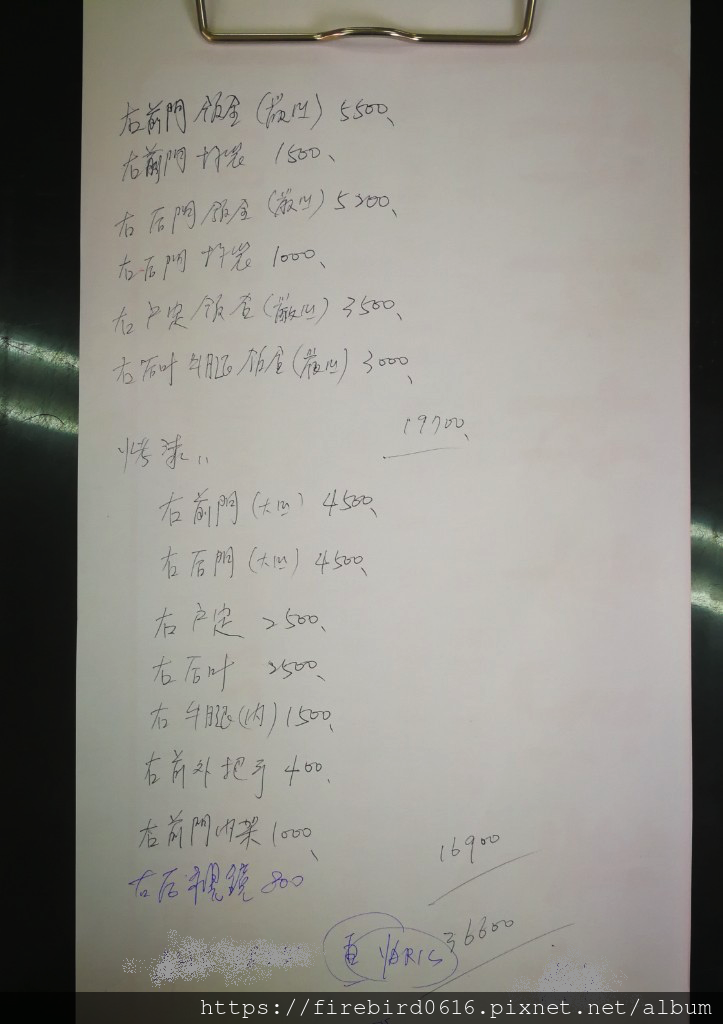 右前門 鈑金 5500、
右前門 拆裝 1500、
右后門 鈑金 5200、
右后門 拆裝 1000、
右戶定 鈑金 3500、
右后叶 鈑金 3000、
19700、
烤漆
右前門 4500、
右后門 4500、
右戶定 2500、
右后叶 2500、
右 (內) 1500、
右前外把手 400、
右前門內架 1000、
16900
右后視鏡 800
36600
YARIS
https://firebird0616.pixnet.net/album